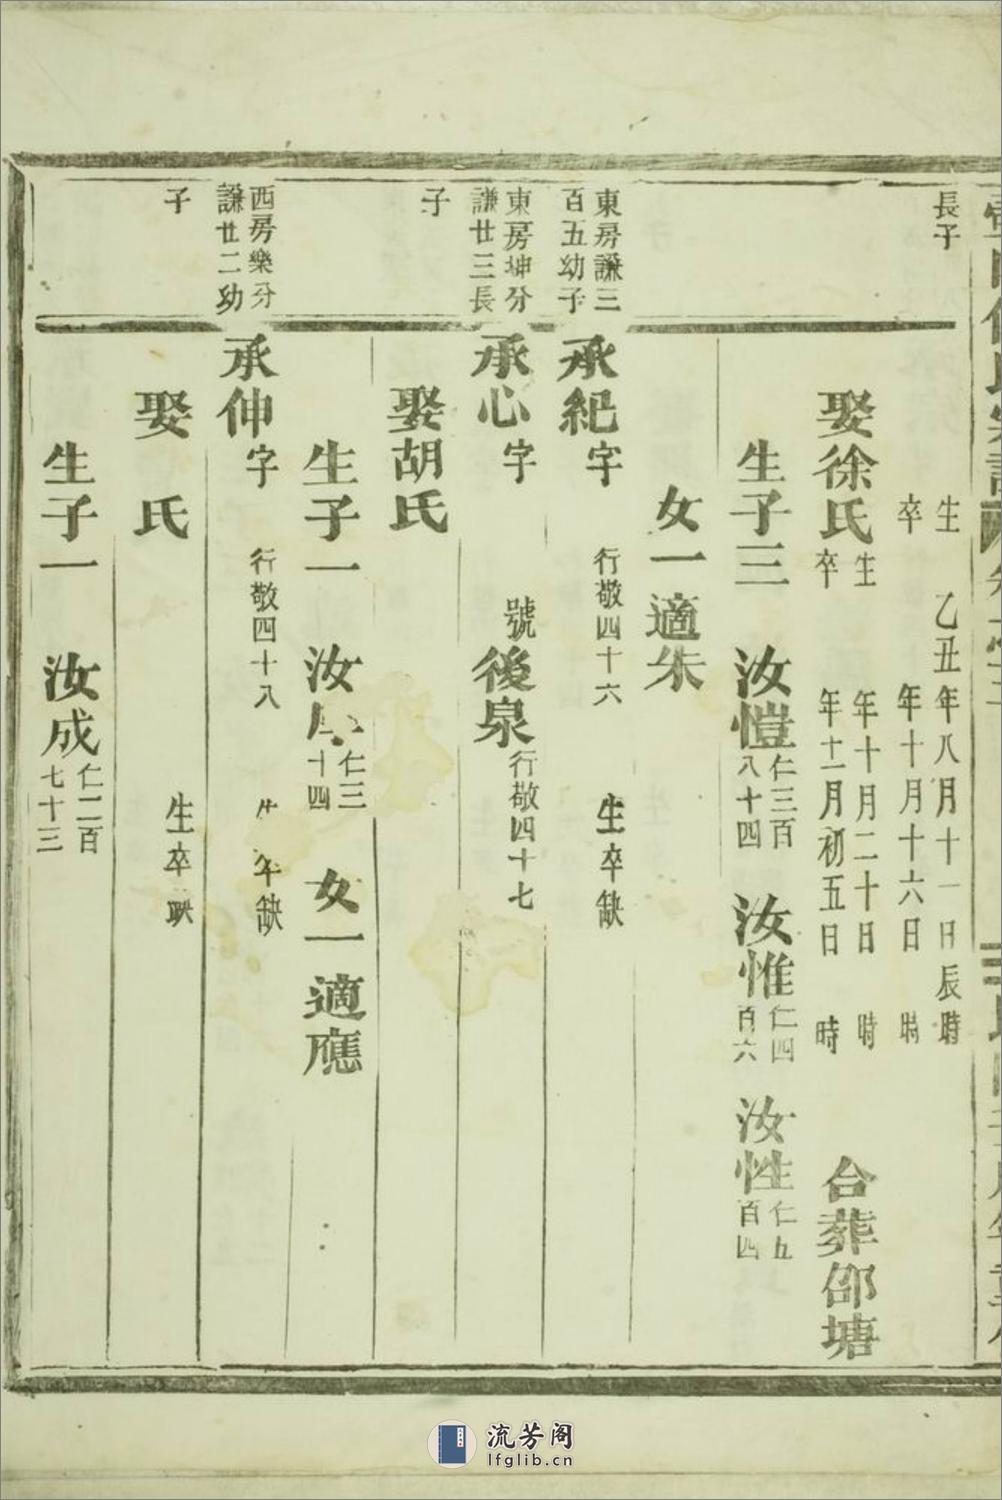 長子
生 乙丑年八月十一日辰時
卒 年十月十六日 時
娶徐氏 生 年十月二十日 時
卒 年十一月初五日 時
合葬邵塘
生子三 汝愷 仁三百八十四 汝惟 仁四百六 汝性 仁五百四
女一適朱
東房謙三百五幼子
承紀字 行敬四十六 生卒缺
東房坤分謙廿三長子
承心字 號後泉 行敬四十七
娶胡氏
生子一 汝 仁三十四 女一適應
西房樂分謙廿二幼子
承伸字 行敬四十八 生卒缺
娶 氏 生卒缺
生子一 汝成 仁二百七十三
流芳阁
lfglib.cn